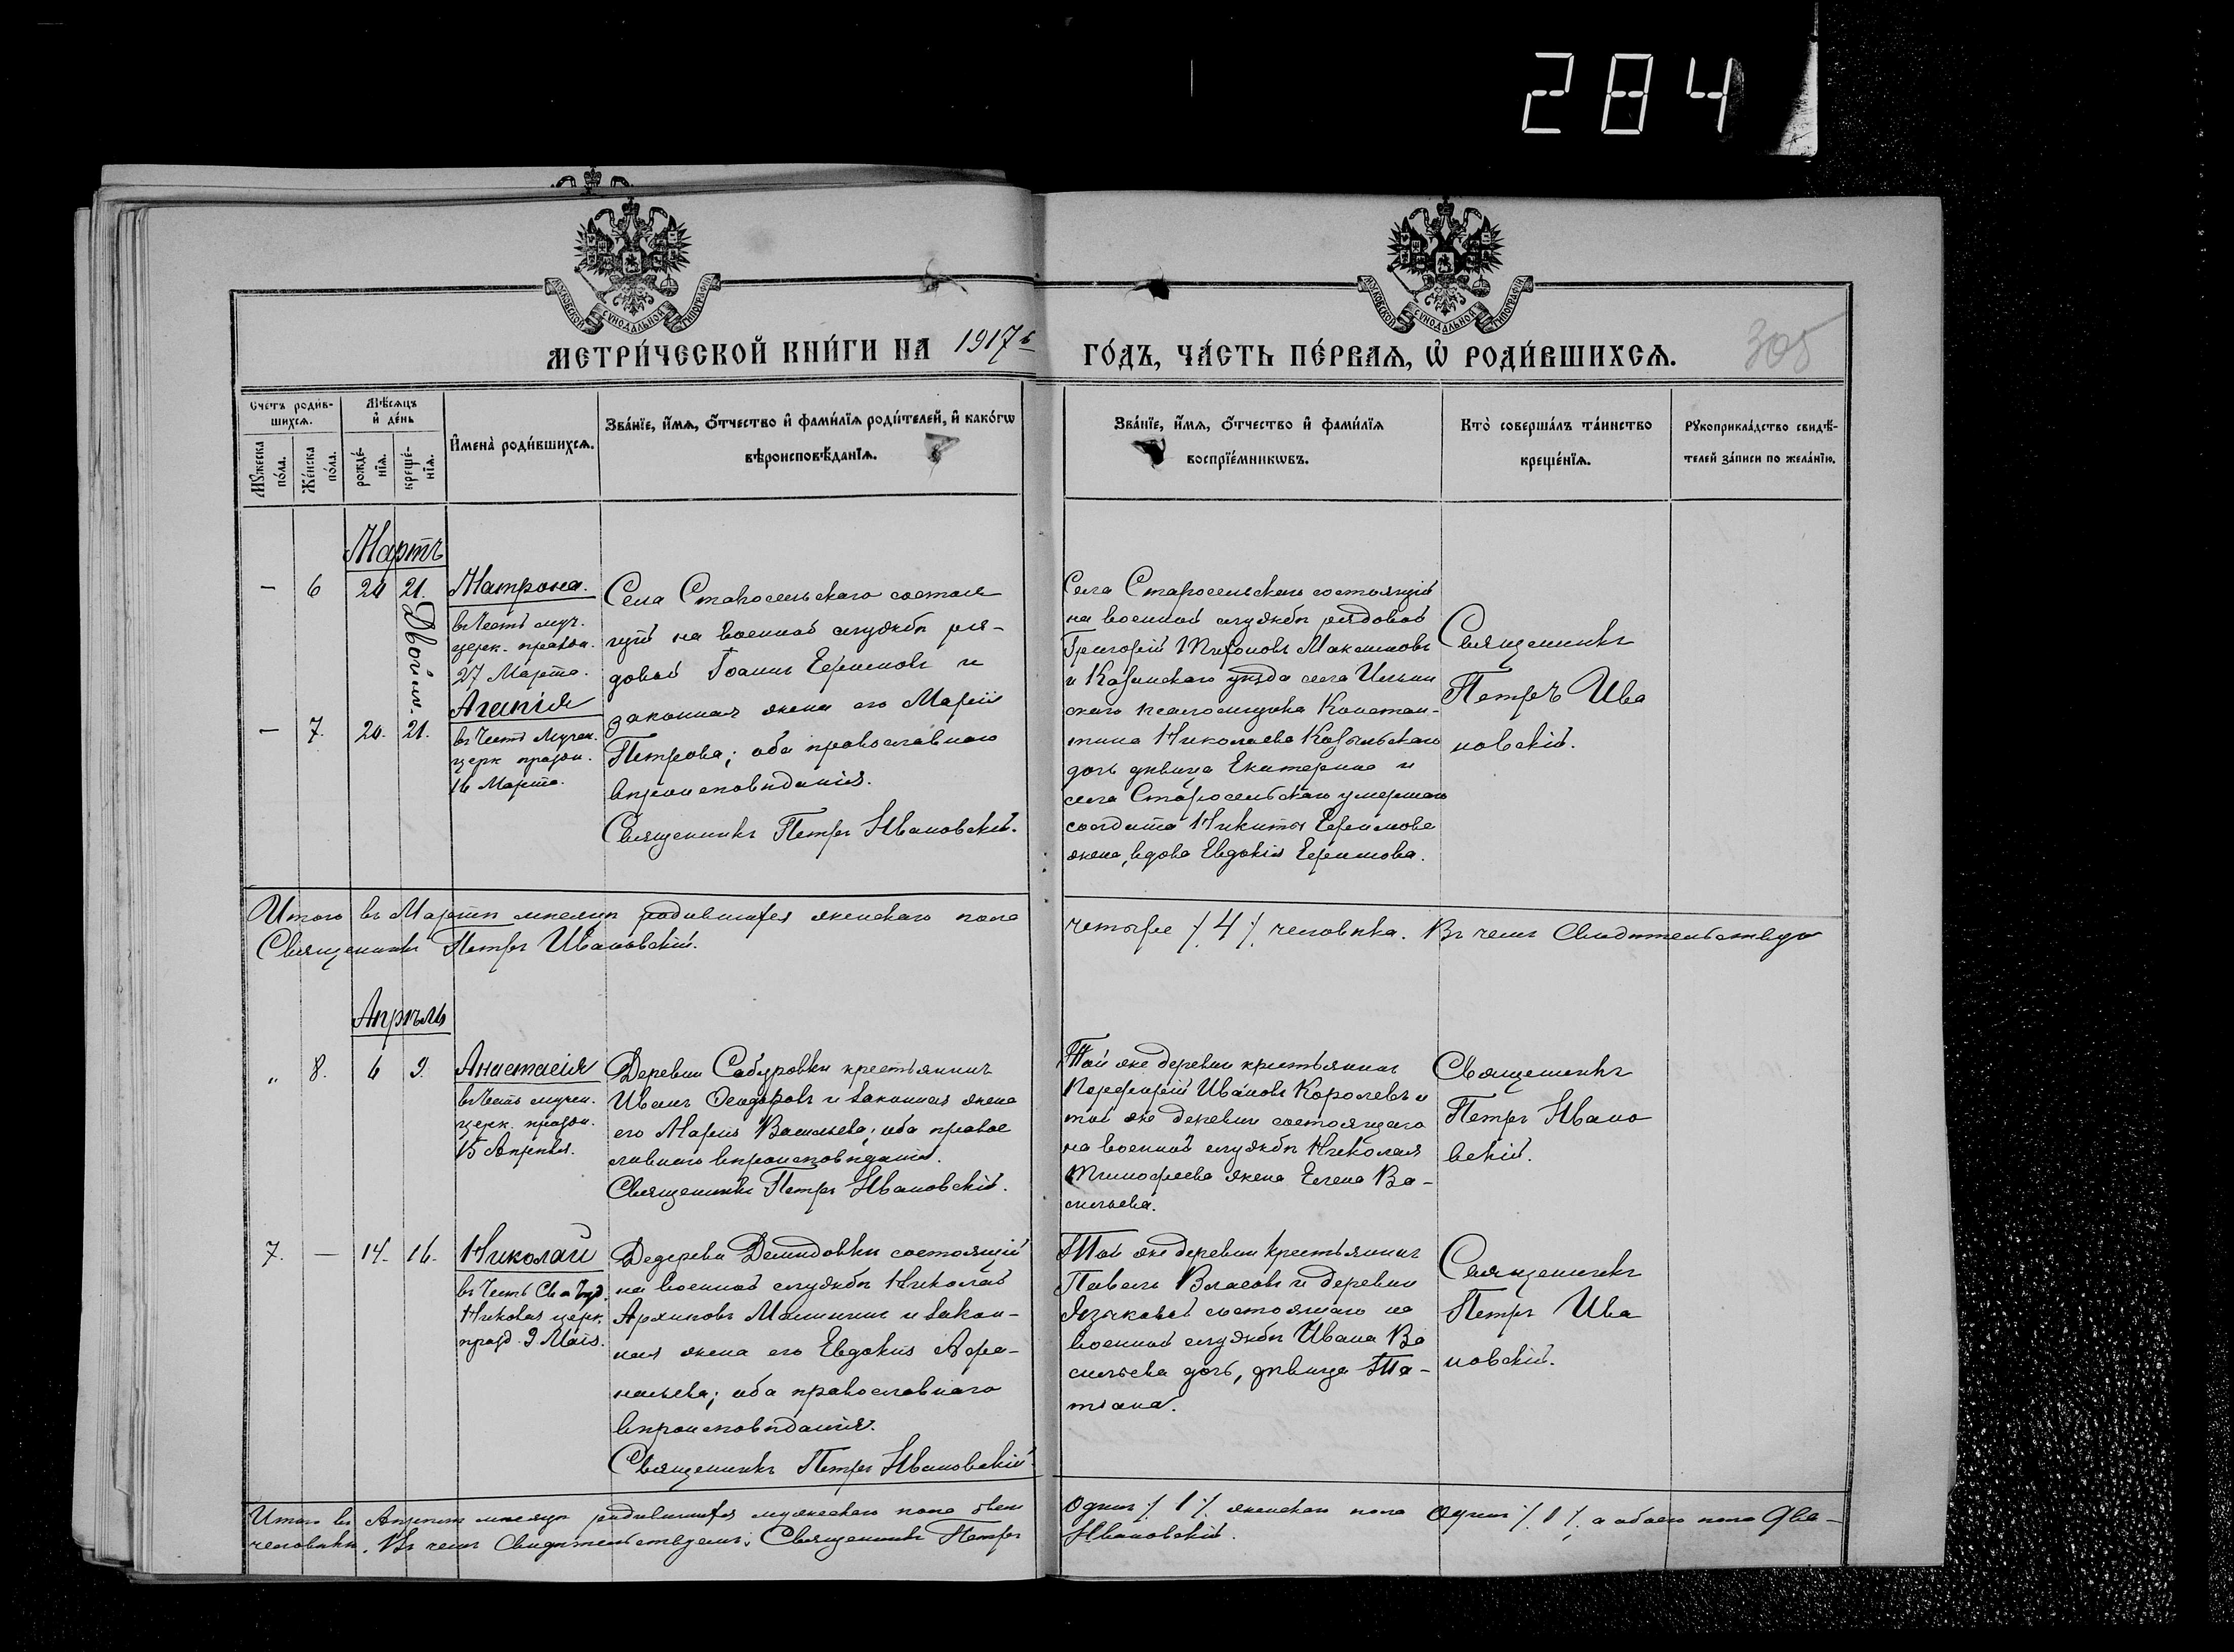 284
МОСКОВСКОЙ СѴНОДАЛЬНОЙ ТИПОГРАФІИ
МОСКОВСКОЙ СѴНОДАЛЬНОЙ ТИПОГРАФІИ
МЕТРИ́ЧЕСКОЙ КНИ́ГИ НА 1917й ГО́ДЪ, ЧА́СТЬ ПЕ́РВАЯ, Ѡ҆ РОДИ́ВШИХСѦ.
305
Сче́тъ роди́в-
шихсѧ.
Мꙋ́жеска
по́ла.
Же́нска
по́ла.
Мѣ́сѧцъ
и҆ де́нь
рожде́-
нїѧ.
креще́-
нїѧ.
И҆мена̀ роди́вшихсѧ.
Зва́нїе, и҆́мѧ, ѻ҆́тчество и҆ фами́лїѧ роди́телей, и҆ како́гѡ
вѣроисповѣ́данїѧ.
Зва́нїе, и҆́мѧ, ѻ҆́тчество и҆ фами́лїѧ
воспрїе́мникѡвъ.
Кто̀ соверша́лъ та́инство
креще́нїѧ.
Рꙋкоприкла́дство свидѣ́-
телей за́писи по жела́нїю.
Мартъ
— 6 20 21. Матрона.
въ честь муч.
церк. праздн.
27 Марта.
Двойни.
— 7. 20. 21. Агапія
въ честь мучен.
церк праздн.
16 Марта.
Села Старосельскаго состоя
щій на военной службѣ ря-
довой Іоаннъ Ефимовъ и
законная жена его Марія
Петрова; оба православнаго
вѣроисповѣданія.
Священникъ Петръ Ивановскій.
Села Старосельскаго состоящій
на военной службѣ рядовой
Григорій Тихоновъ Максимовъ
и уѣзда села Ильин
скаго псаломщика Констан-
тина Николаева
дочь дѣвица Екатерина и
села Старосельскаго умершаго
солдата Никиты Ефимова
жена, вдова Евдокія Ефимова.
Священникъ
Петръ Ива
новскій.
Итого въ Мартѣ мѣсяцѣ родившихся женскаго пола четыре /.4/. человѣка. Въ чемъ свидѣтельствую
Священникъ Петръ Ивановскій.
Апрѣль
„ 8. 6 9. Анастасія
въ честь мучен.
церк. праздн.
15 Апрѣля.
Деревни Сабуровки крестьянинъ
Иванъ Ѳеодоровъ и законная жена
его Марія Васильева; оба право
славнаго вѣроисповѣданія.
Священникъ Петръ Ивановскій.
Той же деревни крестьянинъ
Порфирій Ивановъ Королевъ и
той же деревни состоящаго
на военной службѣ Николая
Тимофеева жена Елена Ва-
сильева.
Священникъ
Петръ Ивано
вскій.
7. — 14. 16. Николай
въ честь Св. и Чуд.
Николая церк.
празд. 9 Мая.
Дедеревни Демидовки состоящій
на военной службѣ Николай
Архиповъ Машинъ и закон-
ная жена его Евдокія Афа-
насьева; оба православнаго
вѣроисповѣданія.
Священникъ Петръ Ивановскій
Той же деревни крестьянинъ
Павелъ Власовъ и деревни
Языковой состоящаго на
военной службѣ Ивана Ва
сильева дочь, дѣвица Та-
тіана.
Священникъ
Петръ Ива
новскій.
Итого въ Апрѣлѣ мѣсяцѣ родившихся мужескаго пола одинъ /.1/. женскаго пола одинъ /.1/. а обоего пола два
человѣка. Въ чемъ свидѣтельствуемъ: Священникъ Петръ Ивановскій.